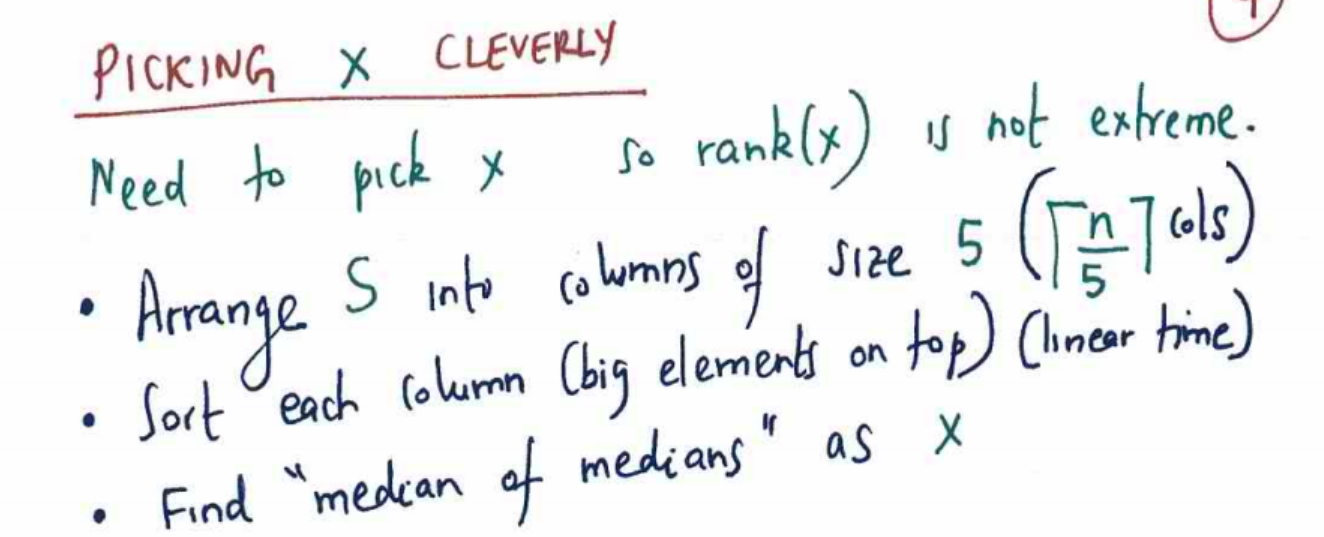 PICKING X CLEVERLY
Need to pick x so rank(x) is not extreme.
• Arrange S into columns of size 5 (⌈n/5⌉ cols)
• Sort each column (big elements on top) (linear time)
• Find "median of medians" as X